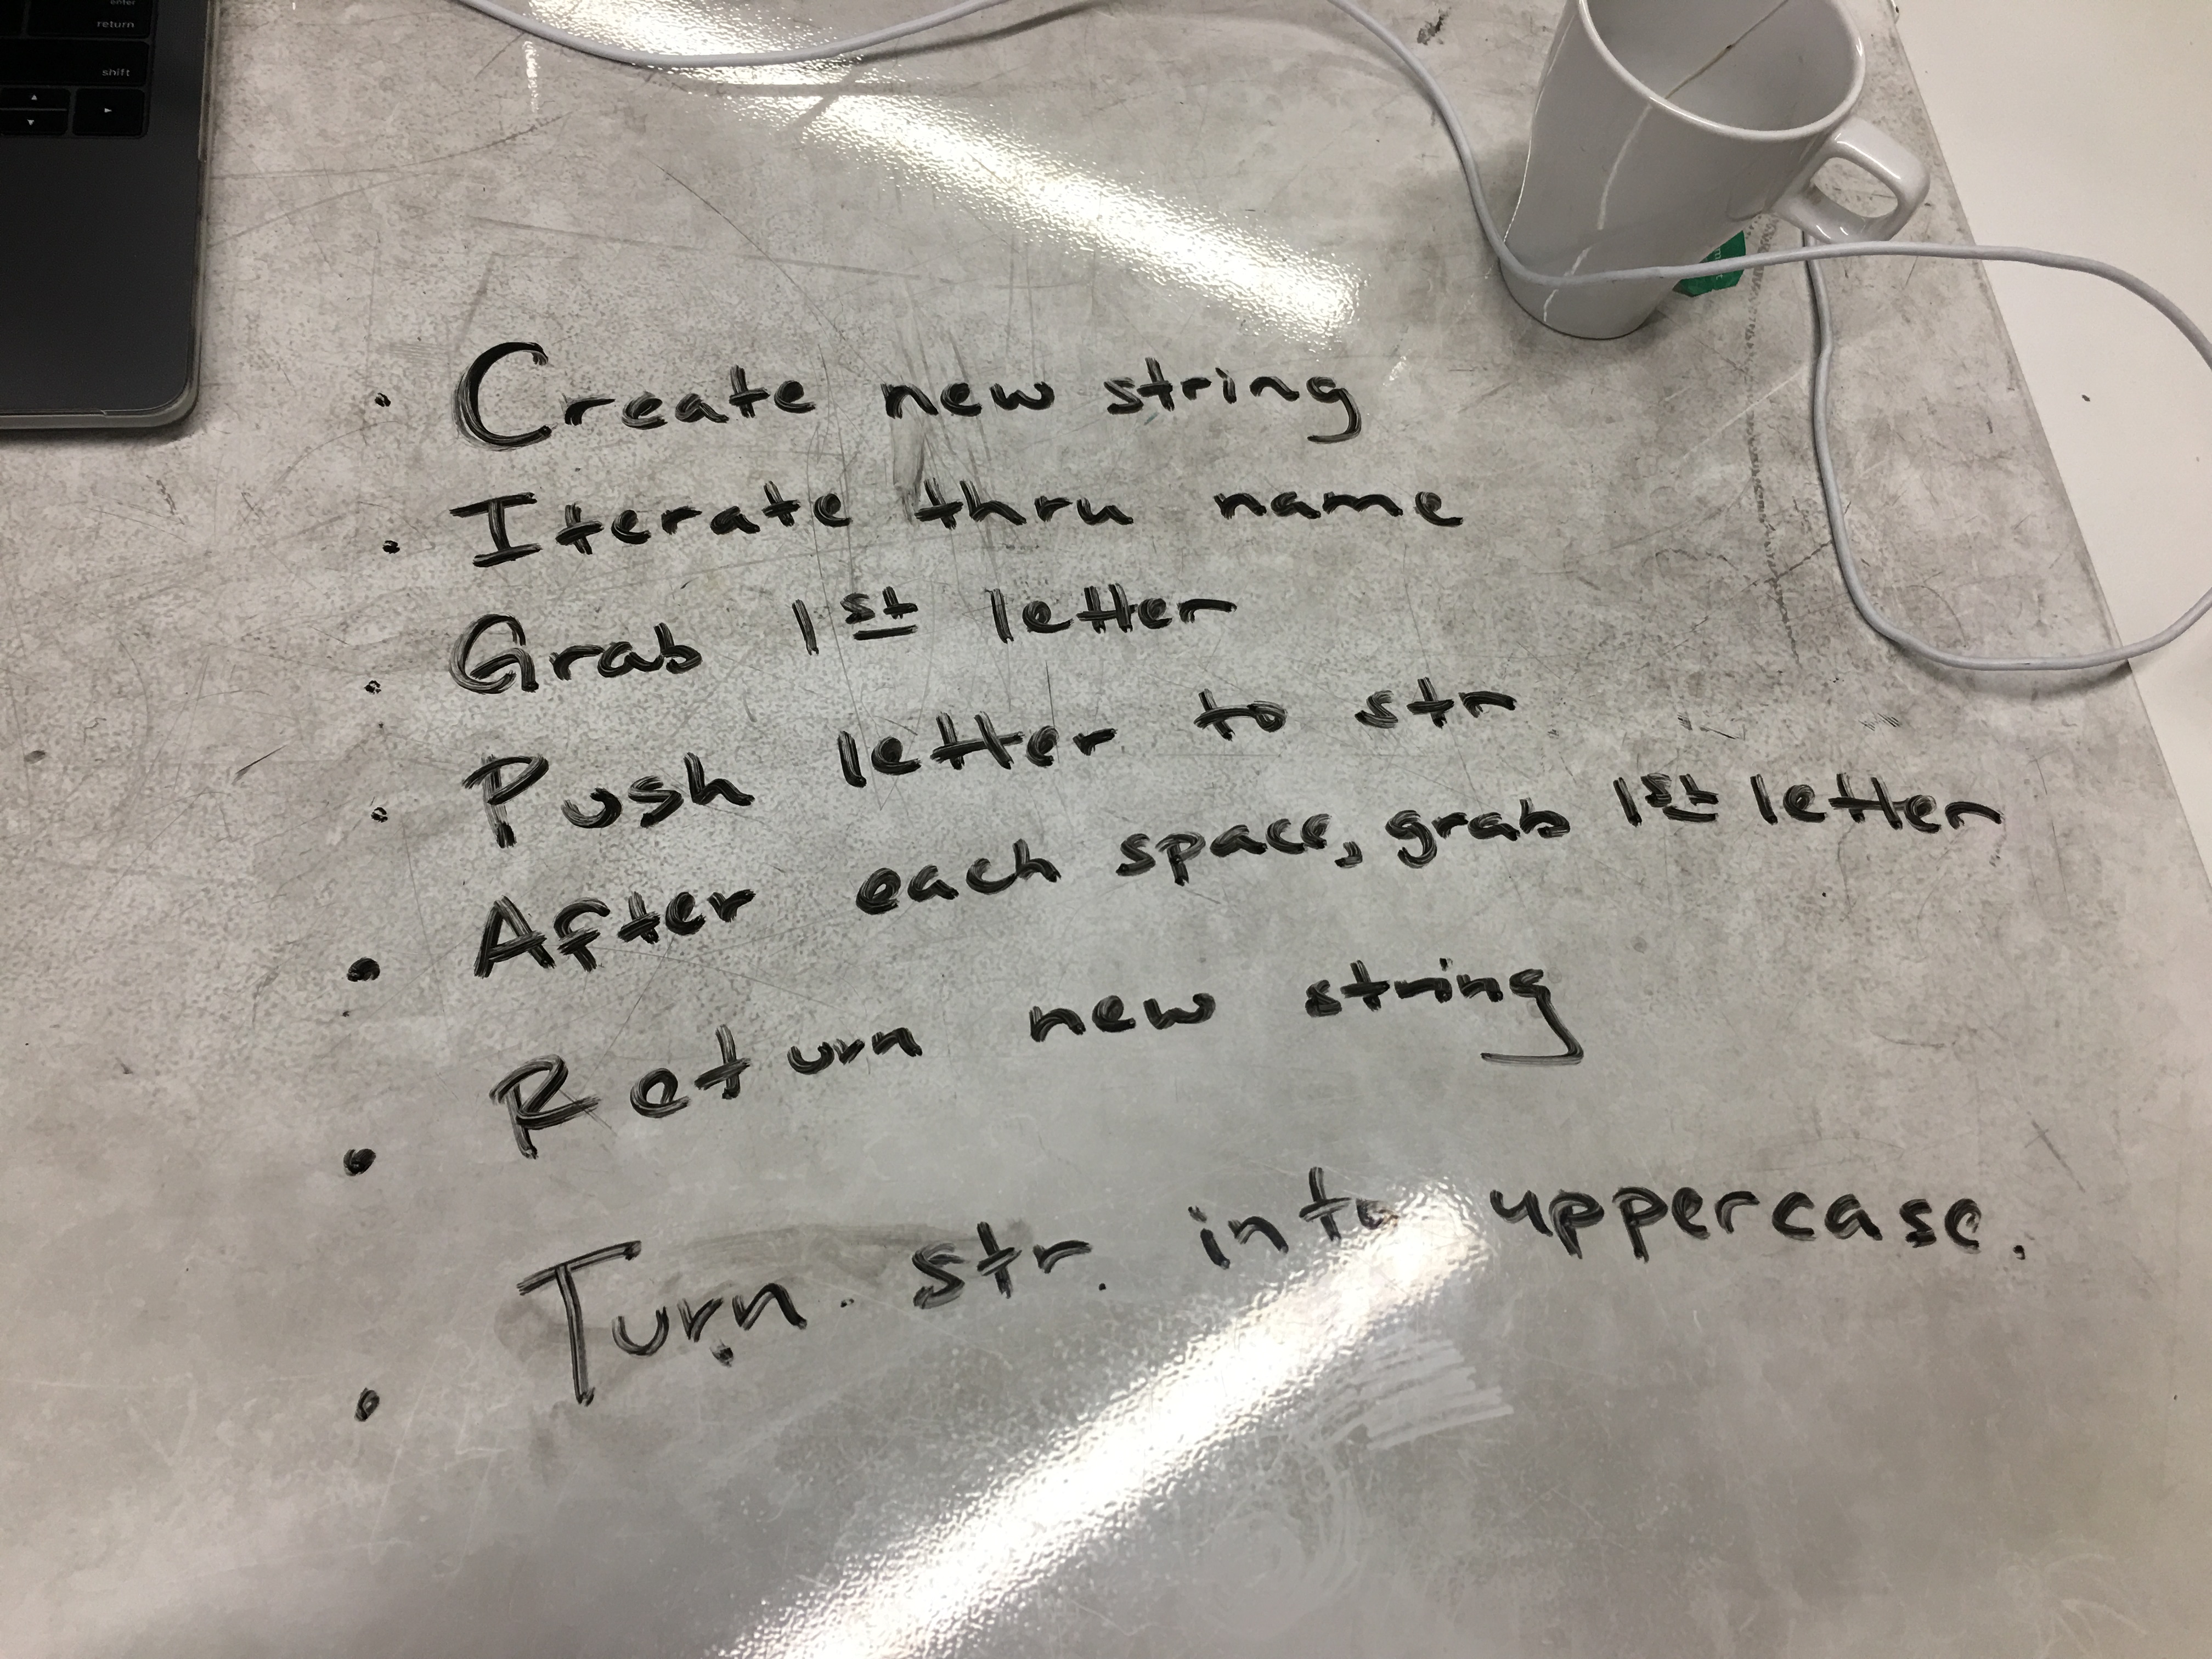 • Create new string
• Iterate thru name
• Grab 1st letter
• Push letter to str
• After each space, grab 1st letter
• Return new string
• Turn str. into uppercase.
shift
return
enter